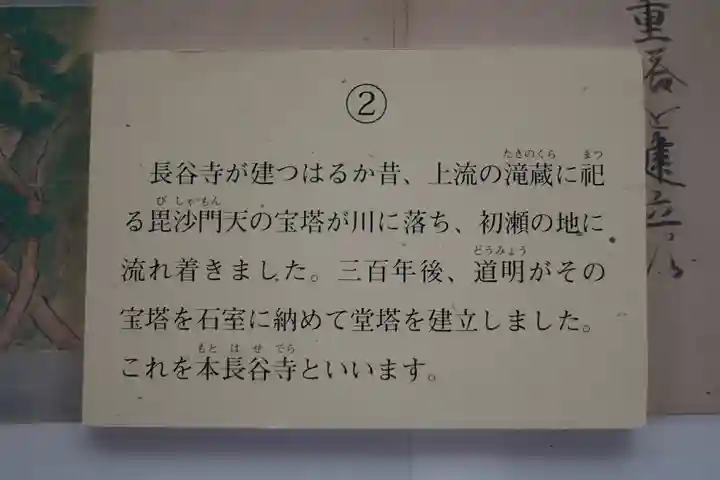 ②
長谷寺が建つはるか昔、上流の滝蔵に祀
る毘沙門天の宝塔が川に落ち、初瀬の地に
流れ着きました。三百年後、道明がその
宝塔を石室に納めて堂塔を建立しました。
これを本長谷寺といいます。
たきのくら
まつ
びしゃもん
どうみょう
もと は せ でら
建立